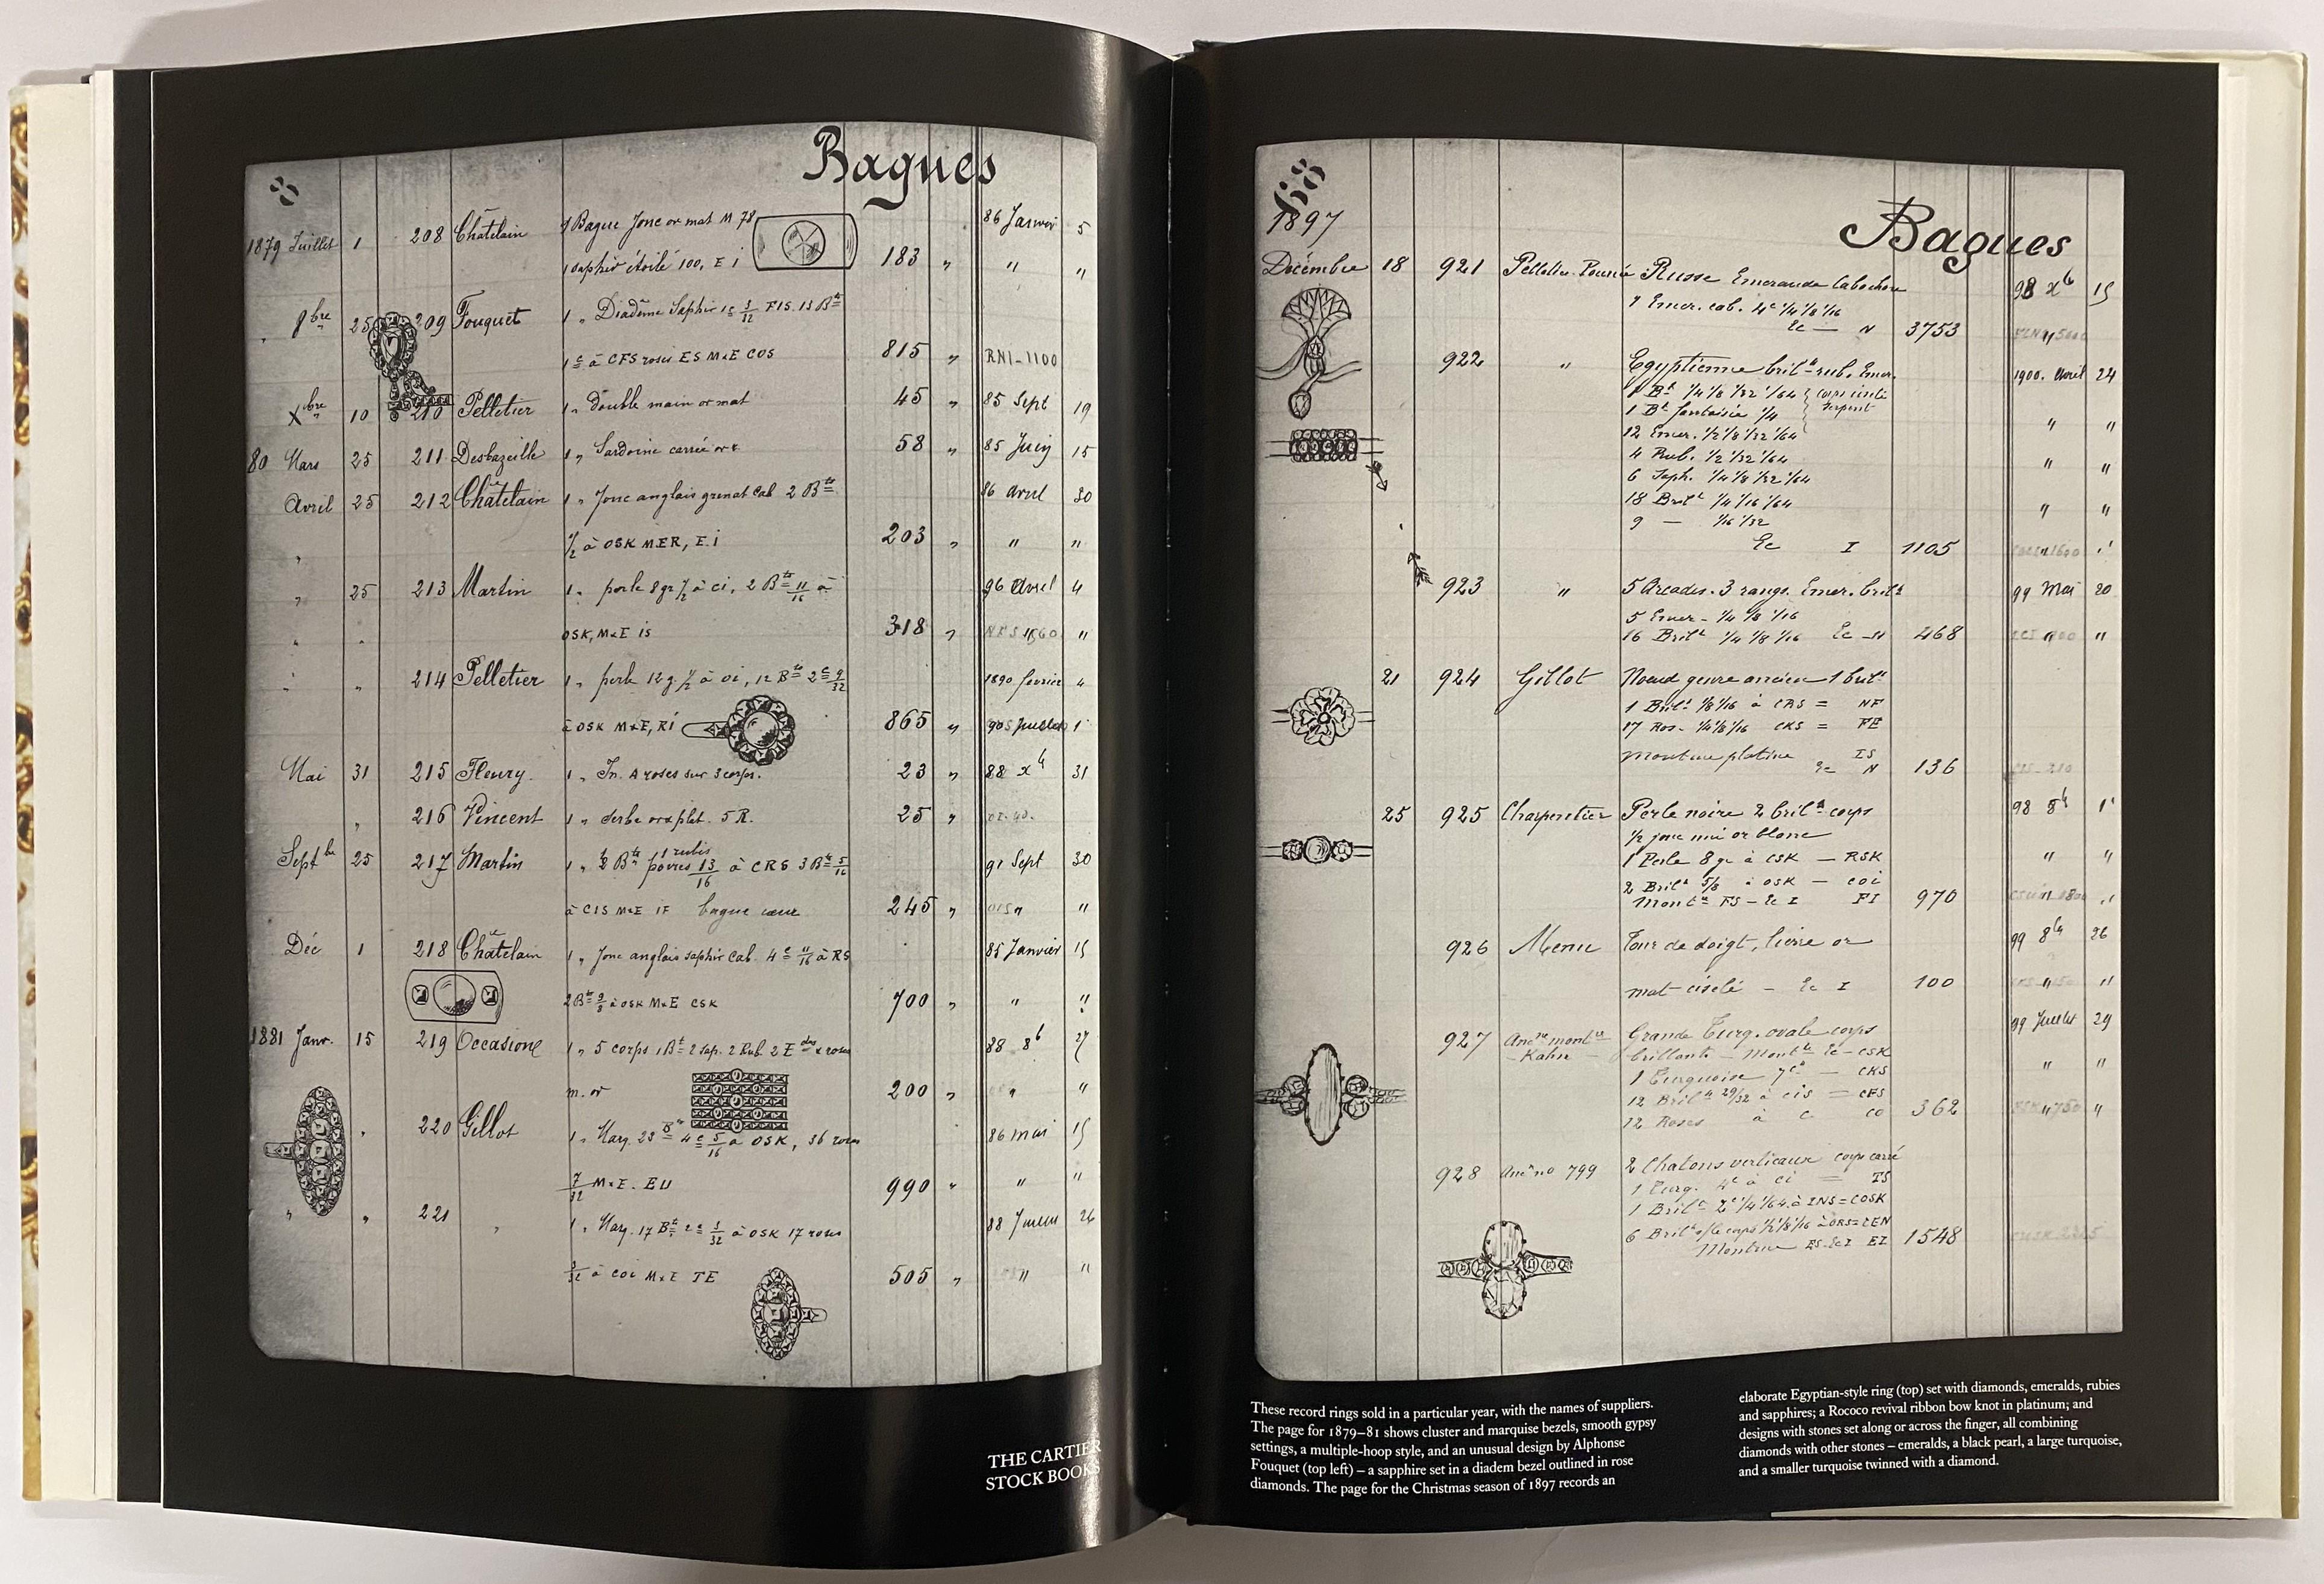 8
Bagues
1879 Juillet 1 208 Châtelain 1 Bague Jonc or mat M 78 86 Janvier 5
1 Saphir étoilé 100, E i 183 " " "
9bre 25 209 Fouquet 1 " Diadème Saphir
1 c à CFS roses ES M&E COS 815 " RNI-1100
Xbre 10 210 Pelletier 1 " double main or mat 45 " 85 Sept 19
80 Mars 25 211 Desbazeille 1 " Sardoine carrée or 58 " 85 Juin 15
Avril 25 212 Châtelain 1 " Jonc anglais grenat Cab 2 Bts 86 Avril 30
1/2 à OSK MER, E.i 203 " " "
" 25 213 Martin 1 " perle 8 gr 1/2 à ci, 2 Bts 11/16 à 96 Avril 4
OSK, M&E is 318 " "
" " 214 Pelletier 1 " perle 12 g. 1/2 à oi, 12 Bts 2c 9/32 1890 février 4
à OSK M&E, Ri 865 " 90 Juillet 1
Mai 31 215 Fleury 1 " 4 roses sur 3 corps. 23 " 88 xb 31
" 216 Vincent 1 " 5 R. 25 "
Septbre 25 217 Martin 1 " 2 Bts poires 1 rubis 13/16 à CRS 3 Bts 5/16 91 Sept 30
à CIS M&E IF bague cœur 245 " "
Déc 1 218 Châtelain 1 " Jonc anglais saphir Cab. 4c 11/16 à RS 85 Janvier 15
2 Bts à OSK M&E CSK 700 " " "
1881 Janv. 15 219 Occasion 1 " 5 corps 1 Bt 2 sap. 2 Rub. 2 E & roses 88 8b 27
m. or 200 " " "
" 220 Gillot 1 " Marq. 23 Bts 4c 5/16 à OSK, 36 roses 86 Mai 15
7/32 M&E. EU 990 " " "
" " 221 " 1 " Marq. 17 Bts 2c 3/32 à OSK 17 roses 88 26
à COI M&E TE 505 " " "
THE CARTIER
STOCK BOOKS
68
1897
Bagues
Décembre 18 921 Pelletier Russe Emeraude Cabochon 98 xb 15
1 Emer. cab. 4c 1/4 1/8 1/16
Ec — N 3753
922 " Egyptienne brilts rub. Emer. 1900. Avril 24
1 Bt 1/4 1/8 1/32 1/64 corps
1 Bt fantaisie 1/4 serpent " "
12 Emer. 1/2 1/8 1/32 1/64
4 Rub. 1/2 1/32 1/64 " "
6 Saph. 1/4 1/8 1/32 1/64
18 Brilts 1/4 1/16 1/64 " "
9 — 1/16 1/32
Ec I 1105
923 " 5 Arcades. 3 rangs. Emer. brilts 99 Mai 20
5 Emer - 1/4 1/8 1/16
16 Brilts 1/4 1/8 1/16 Ec - N 468 " "
21 924 Gillot Noeud genre ancien 1 brilt
1 Brilt 1/8 1/16 à CRS = NF
17 Ros - 1/4 1/8 1/16 CKS = FE
Monture platine IS
Ec N 136
25 925 Charpentier Perle noire 2 brilts corps 98 8b 1
1/2 jonc uni or blanc
1 Perle 8 gr à CSK — RSK " "
2 Brilts 5/8 à OSK — COI
Montre FS - Ec I FI 970
926 Menu Tour de doigt, lierre or 99 8b 26
mat ciselé — Ec I 100 " "
927 Ancne montre Grande Turq. ovale corps 99 Juillet 29
- Kahn - brillants — Montre Ec - CSK
1 Turquoise 7cs — CKS " "
12 Brilts 29/32 à CIS = CFS
12 Roses à C CO 362 "
928 Ancn no 799 2 Chatons verticaux corps carré
1 Turq. 4c à ci = IS
1 Brilt 2c 1/4 1/64 à INS = COSK
6 Brilts s/le corps 1/2 1/8 1/16 à ORS = CEN
Monture ES - Ec I EI 1548
These record rings sold in a particular year, with the names of suppliers.
The page for 1879–81 shows cluster and marquise bezels, smooth gypsy
settings, a multiple-hoop style, and an unusual design by Alphonse
Fouquet (top left) – a sapphire set in a diadem bezel outlined in rose
diamonds. The page for the Christmas season of 1897 records an
elaborate Egyptian-style ring (top) set with diamonds, emeralds, rubies
and sapphires; a Rococo revival ribbon bow knot in platinum; and
designs with stones set along or across the finger, all combining
diamonds with other stones – emeralds, a black pearl, a large turquoise,
and a smaller turquoise twinned with a diamond.